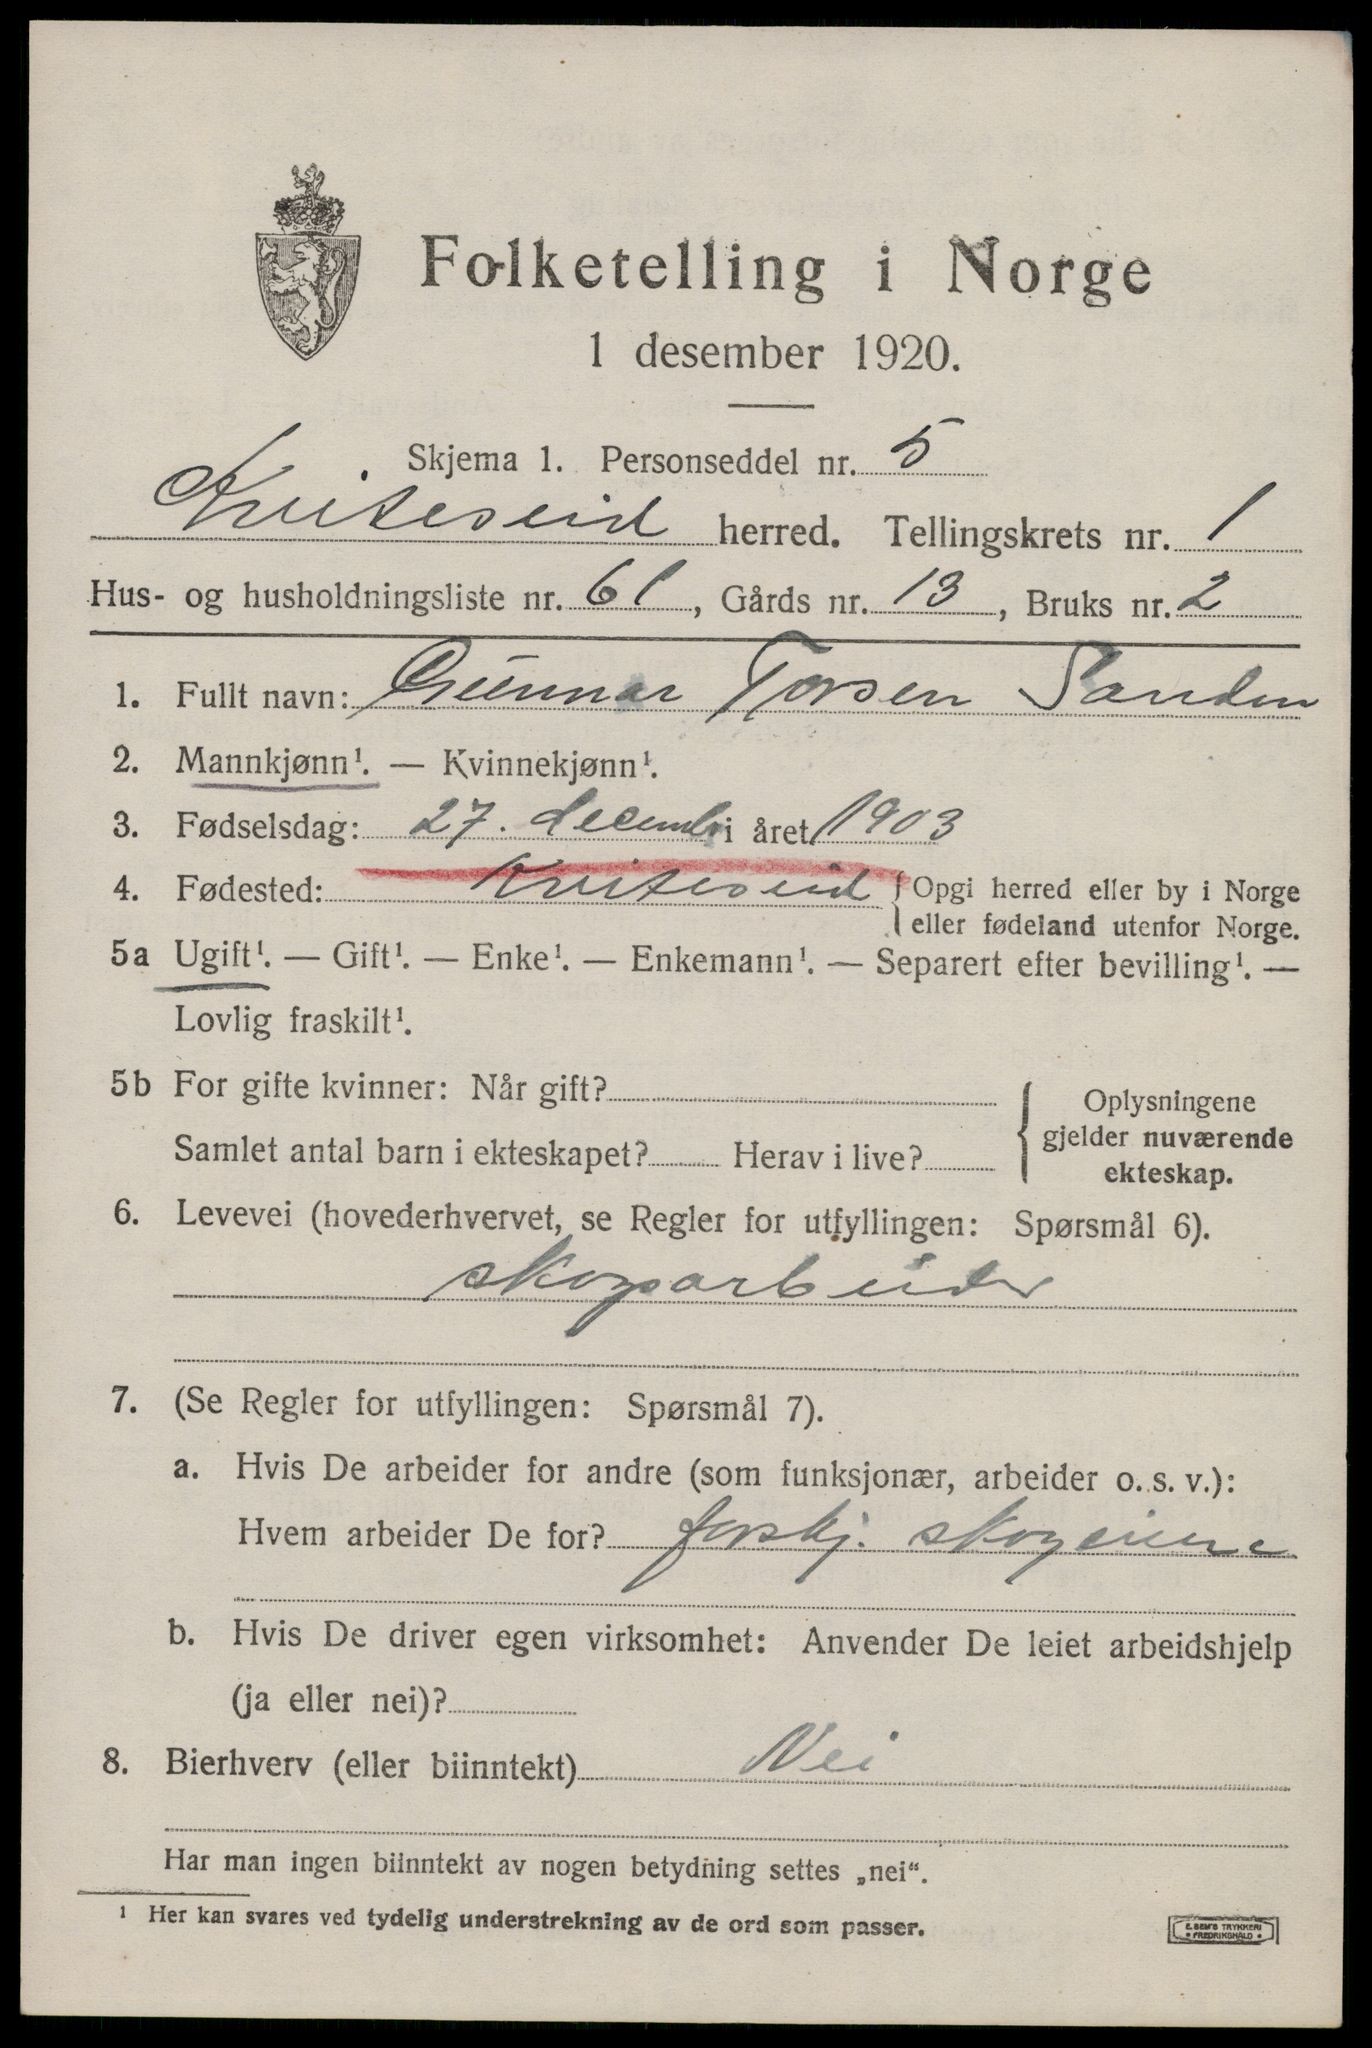 Folketelling i Norge
1 desember 1920.
Skjema 1. Personseddel nr. 5
Kviteseid herred. Tellingskrets nr. 1
Hus- og husholdningsliste nr. 61, Gårds nr. 13, Bruks nr. 2
1. Fullt navn: Gunnar Torsen Sanden
2. Mannkjønn¹. — Kvinnekjønn¹.
3. Fødselsdag: 27. decembr i året 1903
4. Fødested: Kviteseid { Opgi herred eller by i Norge
eller fødeland utenfor Norge.
5a Ugift¹. — Gift¹. — Enke¹. — Enkemann¹. — Separert efter bevilling¹. —
Lovlig fraskilt¹.
5b For gifte kvinner: Når gift?
Samlet antal barn i ekteskapet? Herav i live?
Oplysningene
gjelder nuværende
ekteskap.
6. Levevei (hovederhvervet, se Regler for utfyllingen: Spørsmål 6).
skogsarbeider
7. (Se Regler for utfyllingen: Spørsmål 7).
a. Hvis De arbeider for andre (som funksjonær, arbeider o. s. v.):
Hvem arbeider De for? forskj. skogeiere
b. Hvis De driver egen virksomhet: Anvender De leiet arbeidshjelp
(ja eller nei)?
8. Bierhverv (eller biinntekt) Nei
Har man ingen biinntekt av nogen betydning settes „nei“.
¹ Her kan svares ved tydelig understrekning av de ord som passer.
E. SEM'S TRYKKERI
• FREDRIKSHALD •